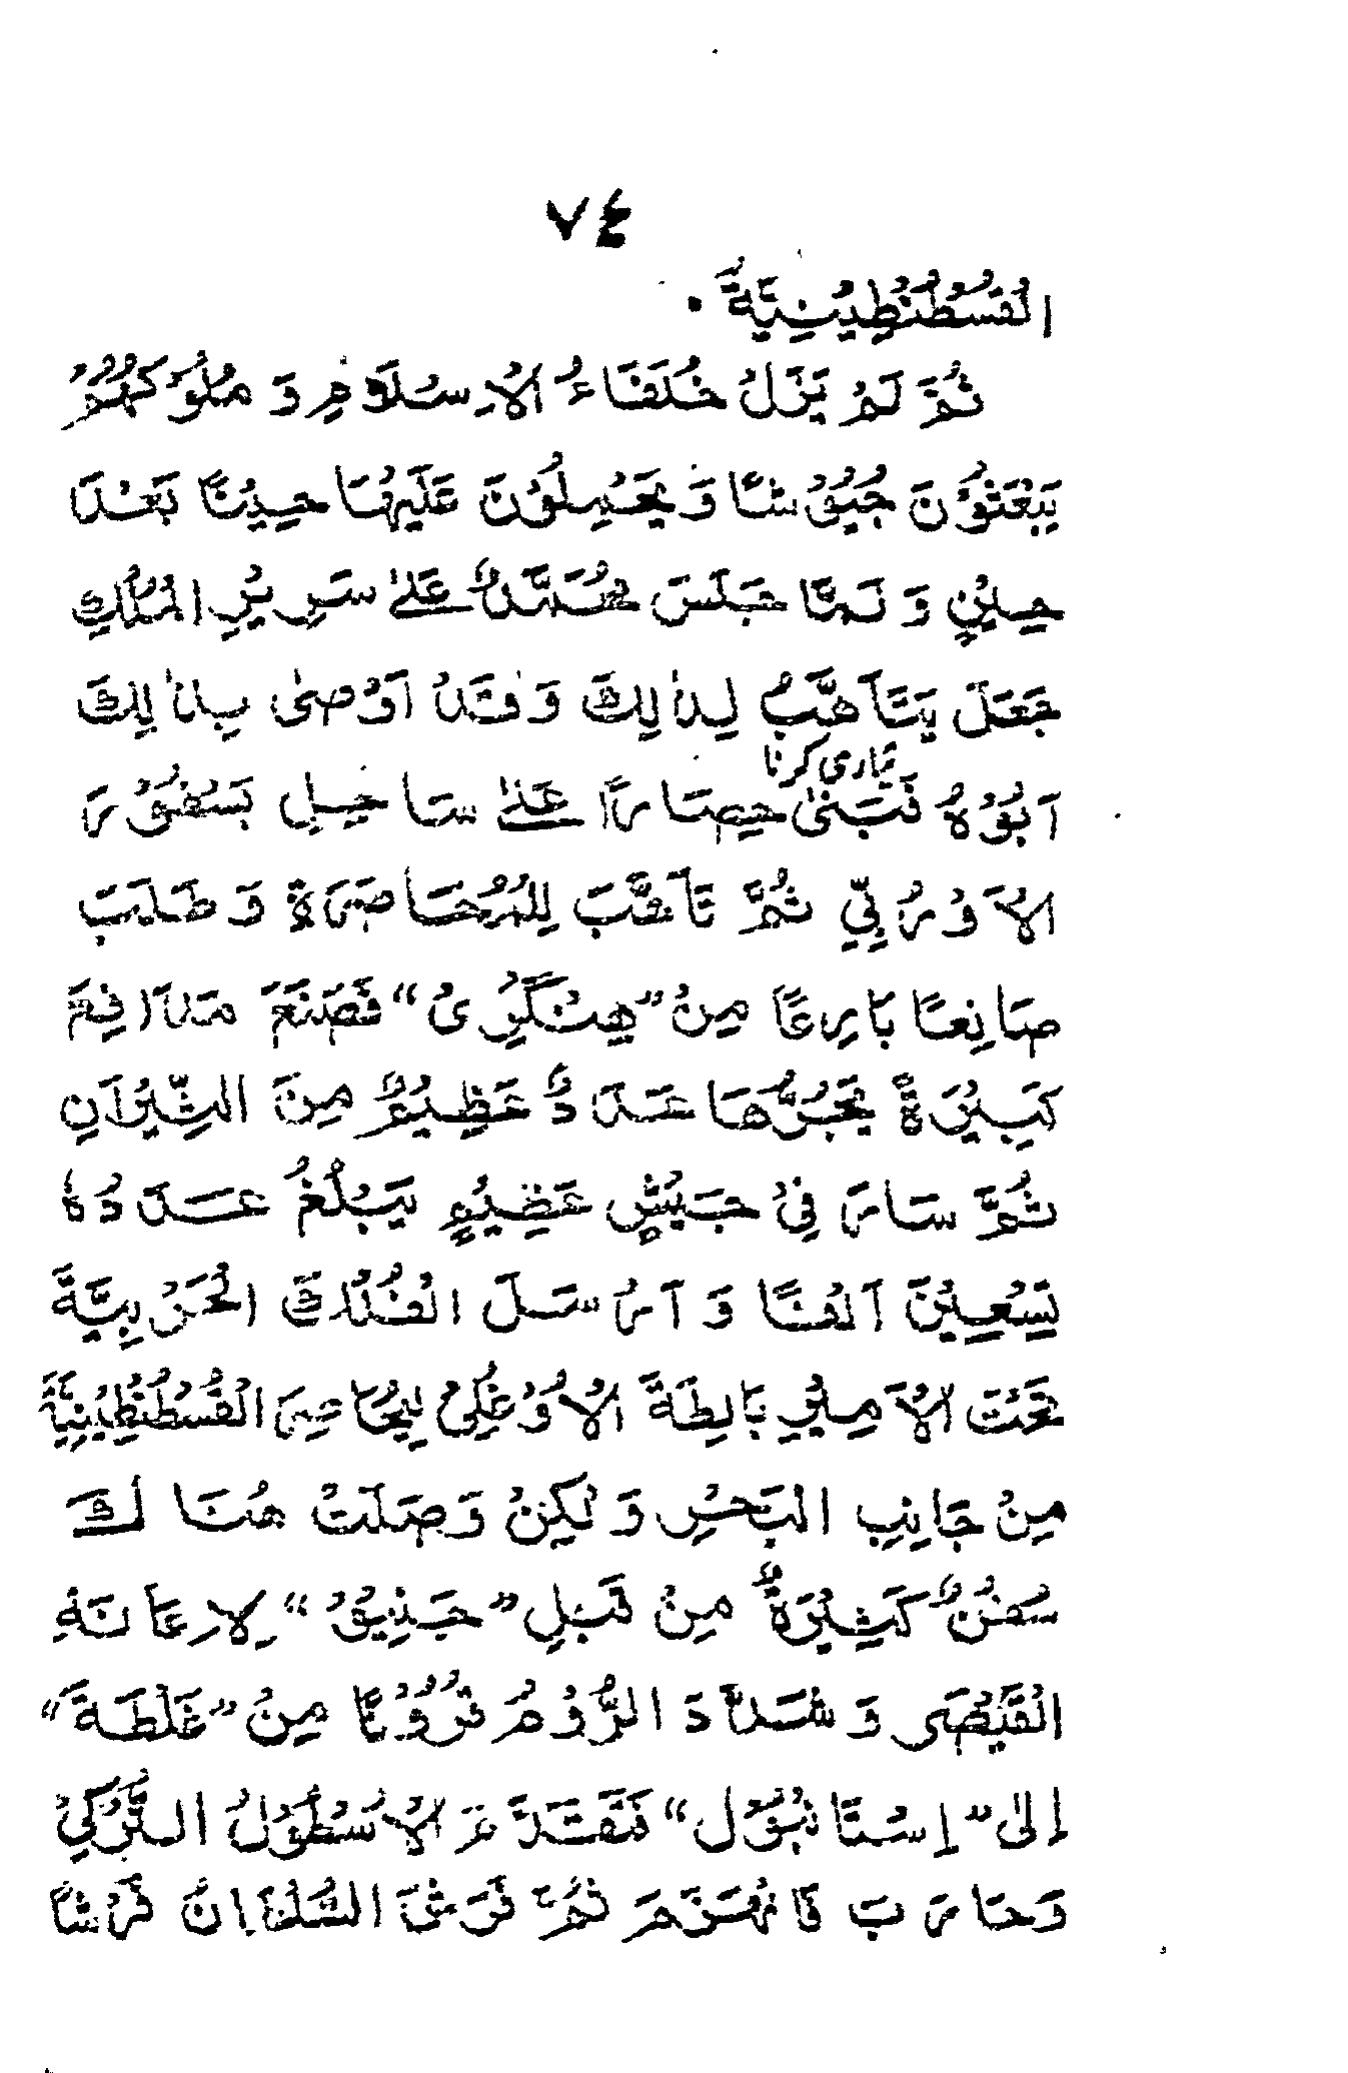 ٧٤
الْقُسْطُنْطِيْنِيَّةَ ۔
ثُمَّ لَمْ يَزَلْ خُلَفَاءُ الْاِسْلَامِ وَ مُلُوْكُهُمْ
يَبْعَثُوْنَ جُيُوْشًا وَ يَحْمِلُوْنَ عَلَيْهَا حِيْنًا بَعْدَ
حِيْنٍ وَ لَمَّا جَلَسَ مُحَمَّدٌ عَلٰى سَرِيْرِ الْمُلْكِ
جَعَلَ يَتَأَهَّبُ لِذٰلِكَ وَ قَدْ اَوْصٰى بِذٰلِكَ
تیاری کرنا
اَبُوْهُ فَبَنٰى حِصَارًا عَلٰى سَاحِلِ بَسْفُوْرَ
الْاَوْرُبِّيِّ ثُمَّ تَأَهَّبَ لِلْمُحَاصَرَةِ وَ طَلَبَ
صَانِعًا بَارِعًا مِنْ "هِنْگَرِيْ" فَصَنَعَ مَدَافِعَ
كَبِيْرَةً يَجُرُّهَا عَدَدٌ عَظِيْمٌ مِنَ الثِّيْرَانِ
ثُمَّ سَارَ فِيْ جَيْشٍ عَظِيْمٍ يَبْلُغُ عَدَدُهٗ
تِسْعِيْنَ اَلْفًا وَ اَرْسَلَ الْفُلْكَ الْحَرْبِيَّةَ
تَحْتَ الْاَمِيْرِ بَالِطَةَ الْاُوْغْلِيْ لِيُحَاصِرَ الْقُسْطُنْطِيْنِيَّةَ
مِنْ جَانِبِ الْبَحْرِ وَ لٰكِنْ وَصَلَتْ هُنَاكَ
سُفُنٌ كَثِيْرَةٌ مِنْ قِبَلِ "جَنِيْوْ" لِاِعَانَةِ
الْقَيْصَرِ وَ شَدَّدَ الرُّوْمُ قُرُوْنًا مِنْ "غَلْطَةَ"
اِلٰى "اِسْتَانْبُوْل" فَتَقَدَّمَ الْاُسْطُوْلُ التُّرْكِيُّ
وَ حَارَبَ فَانْهَزَمَ ثُمَّ فَرَشَ السُّلْطَانُ فَرْشًا